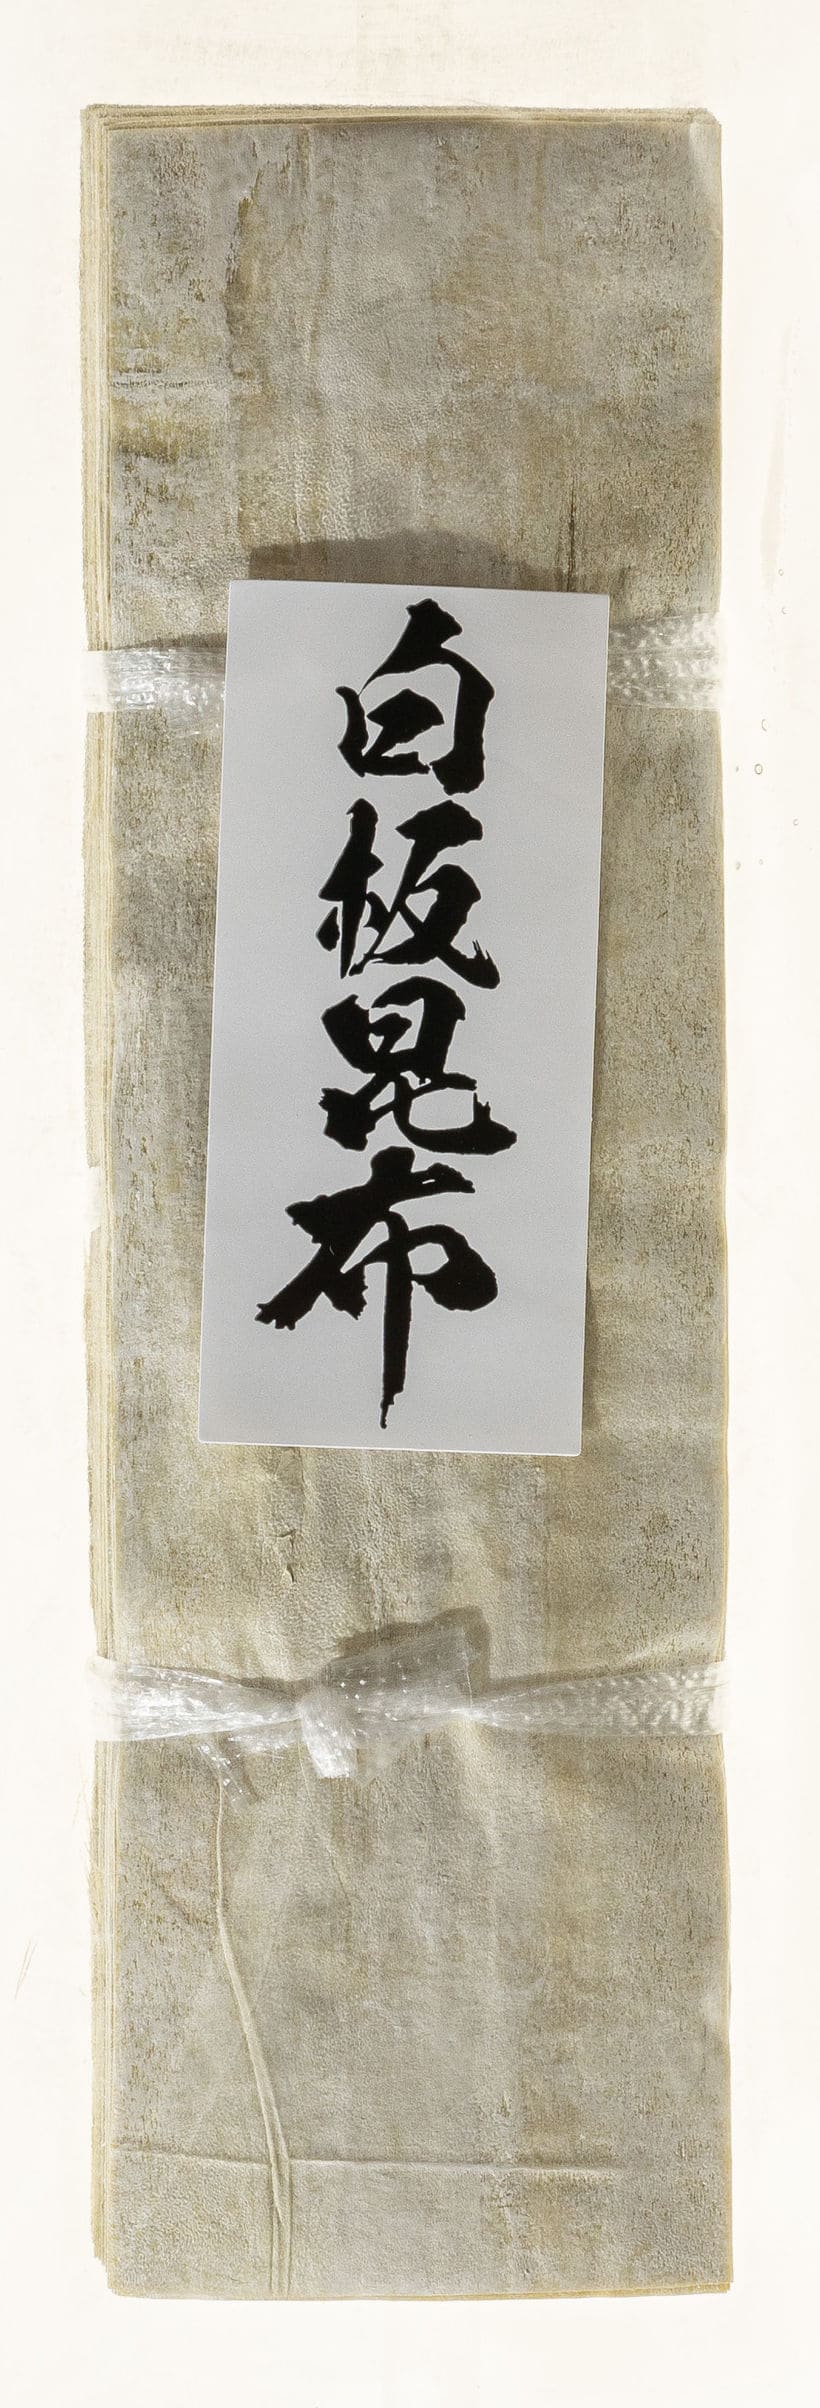 白板昆布